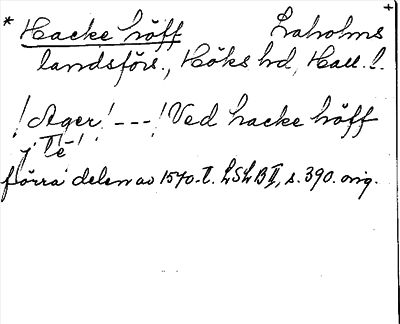 * Hacke höff Laholms +
landsförs., Höks hd, Hall. l.
! Ager! --- ! Ved hacke höff
j Te !
förra delen av 1570-t. LSLB II, s. 390. orig.